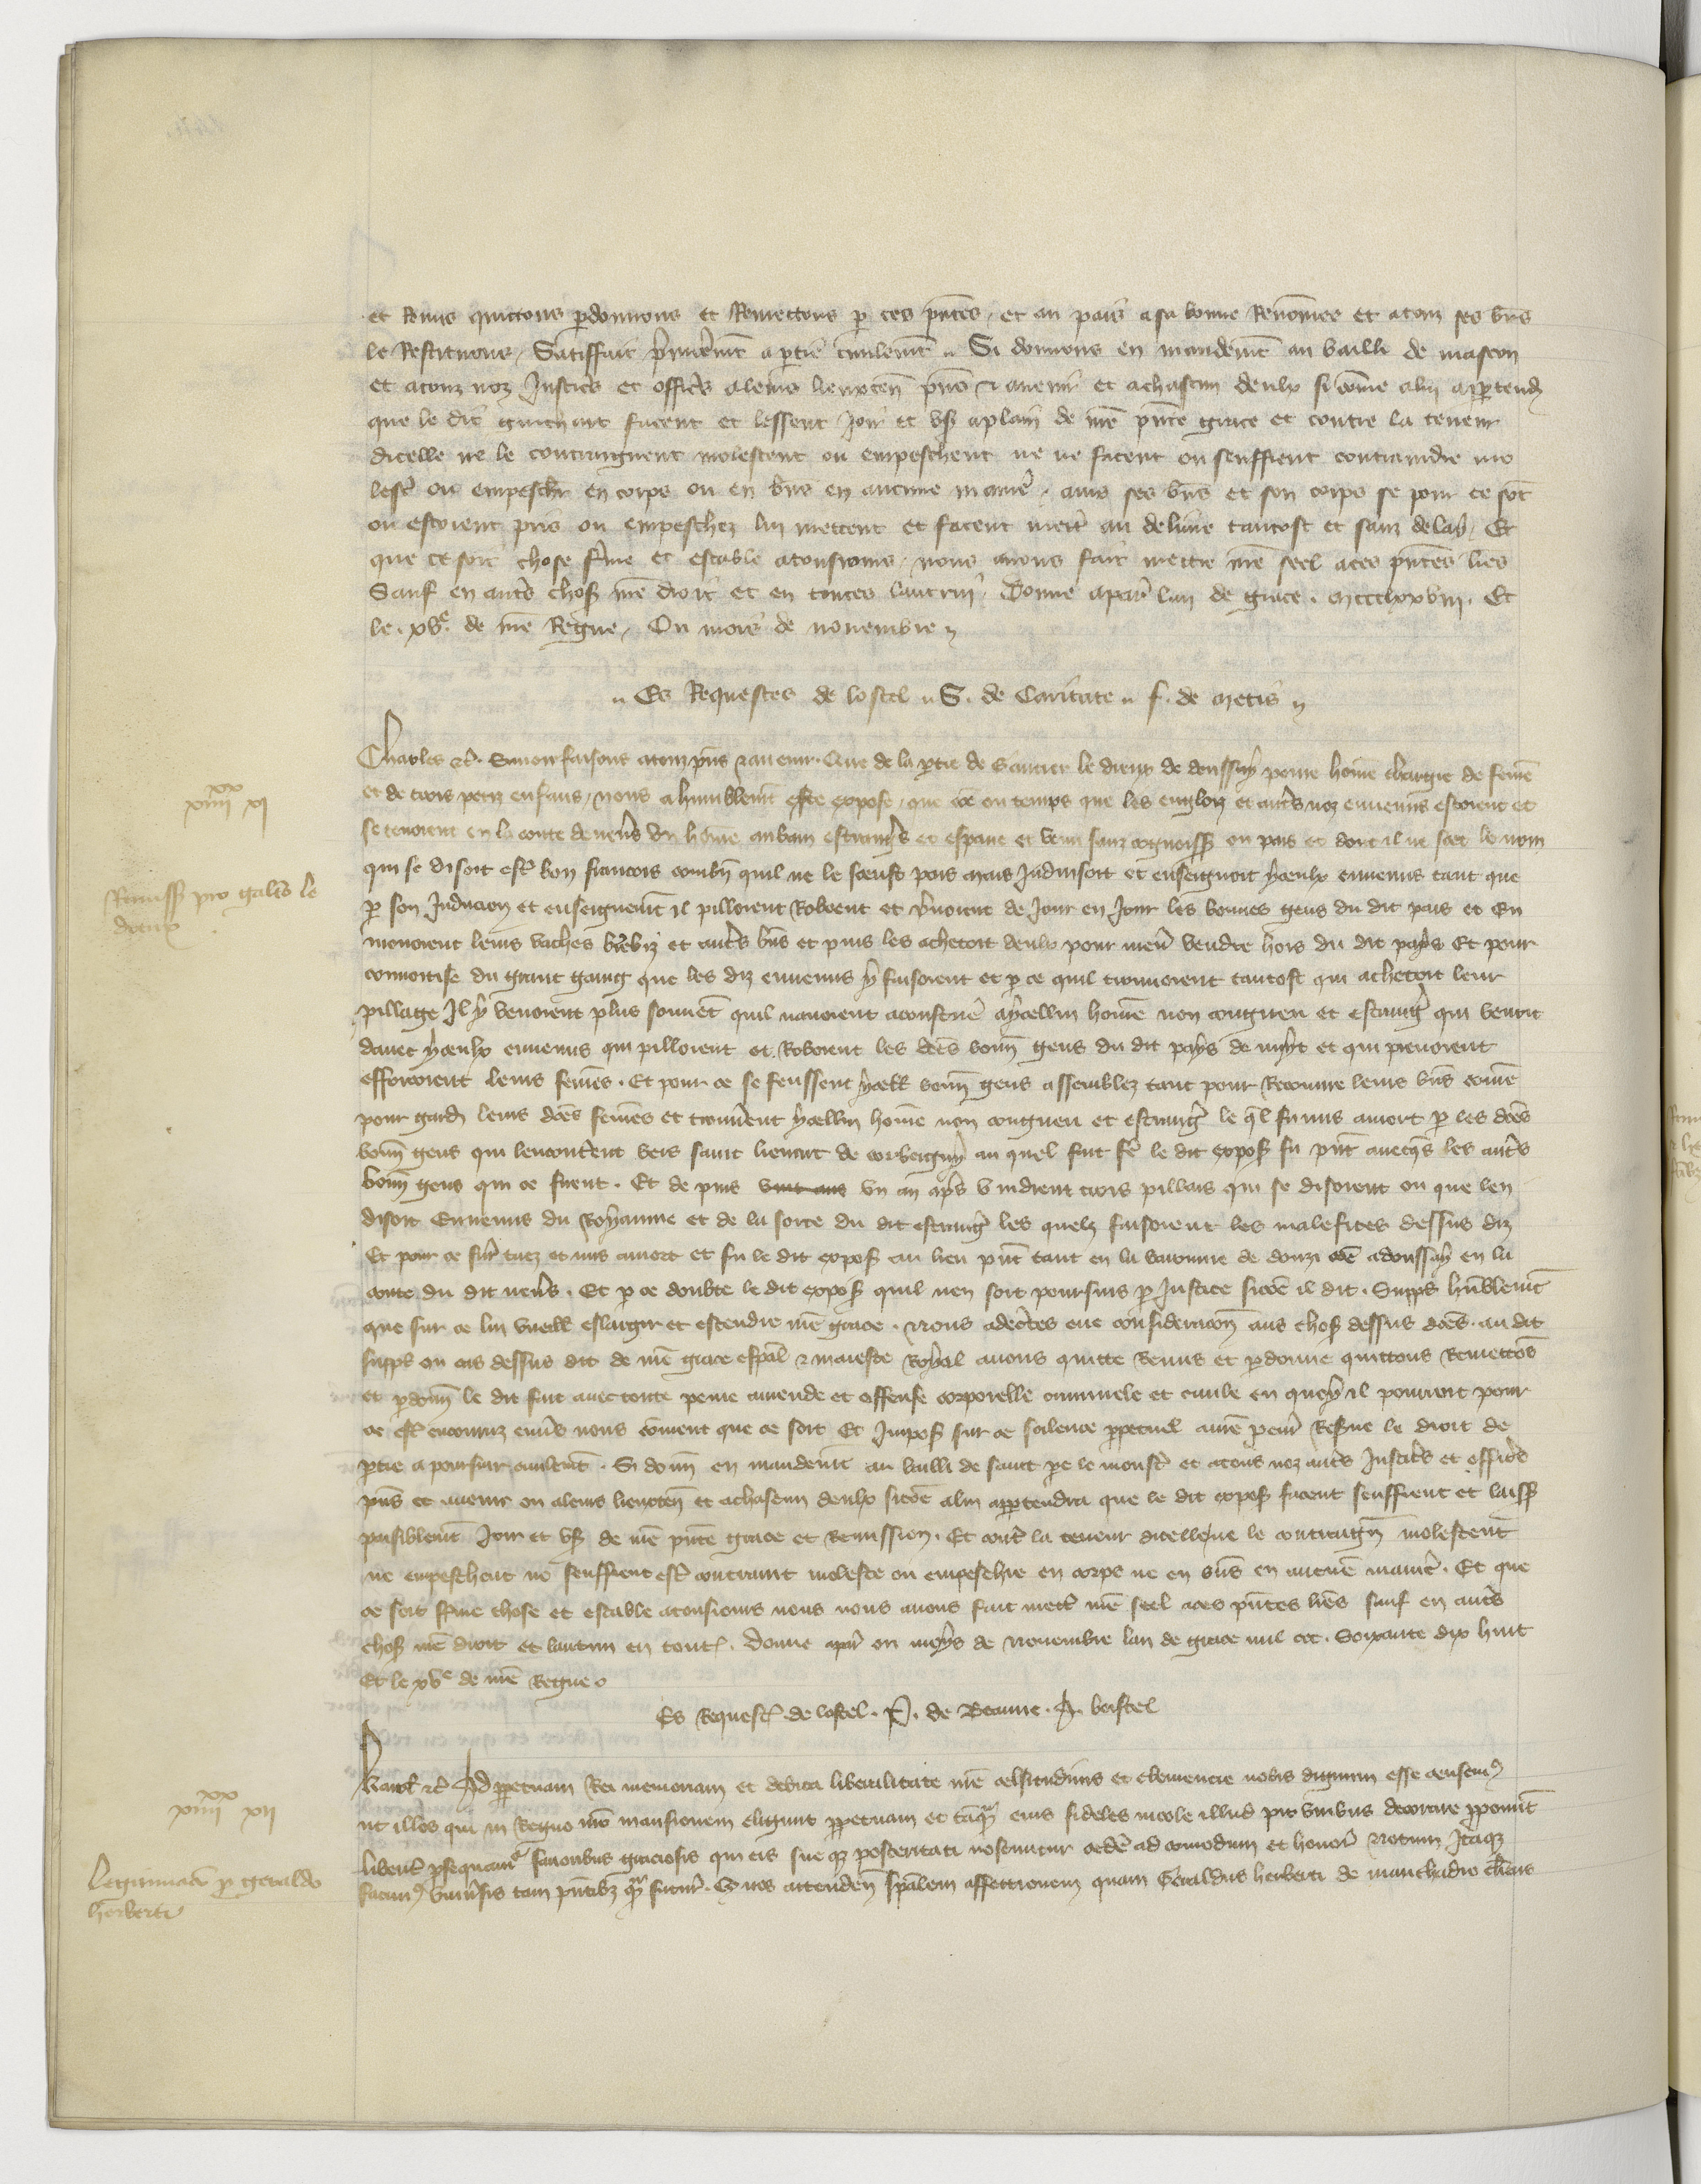 et Remis quittons pdonnons et Remettons p ces pntes, et au pais a sa bonne Renomee et a touz ses bns
le Restituons, Satiffait prmierment a ptie civilemt. Si donnons en mandemt au bailli de mascon
et a touz noz Justics et offics a leurs lieuxten pns et avenir et a chascun deulx si come a lui apptendra
que le dit guichart facent et lessent Joir et usr a plain de nre pnte grace et contre la teneur
dicelle ne le contraingnent molestent ou empeschent ne ne facent ou seuffrent contraindre mo
lestr ou empeschr en corps ou en bns en aucune manie, ains ses bns et son corps se pour ce sot
ou estoient pris ou empeschez lui mettent et facent mettr au delivre tantost et sanz delay, Et
que ce soit chose fme et estable a tousiours, nous avons fait mettre nre seel a ces pntes lres
Sauf en autrs chos nre droit et en toutes lautrui, Donne a paris lan de grace. mccclxxviii. Et
le. xve. de nre Regne, Ou mois de novembre
Es Requestes de lostel S. de Caritate f. de metis
Charles etc. Savoir faisons a touz pns et avenir. Que de la ptie de Gautier le dieux de doussay povre home chargie de feme
et de trois petiz enfans, nous a humblemt este expose, que come ou temps que les englois et autrs noz ennemis estoient et
se tenoient en la conte de nevrs un home aubain estrangr et espave et venu sanz cognoiss ou pais et dont il ne scet le nom
qui se disoit estr bon francois combn quil ne le feust pas mais Induisoit et enseignoit yceulx ennemis tant que
p son Induccion et enseignemt il pilloient Roboient et prnoient de Jour en Jour les bonnes gens du dit pais et En
menoient leurs vaches brebiz et autrs bns et puis les achetoit deulx pour menr vendre hors du dit pays Et pour
convoitise du grant gaing que les diz ennemis y faisoient et p ce quil trouvoient tantost qui achetoit leur
pillage Il y venoient plus souvet quil navoient acoustume a ycellui home non congneu et estrangr qui venoit
davec yceulx ennemis qui pilloient et Roboient les dces bonn gens du dit pays de nuyt et qui prenoient
efforcoient leurs femes. Et pour ce se feussent ycell bonn gens assemblez tant pour Recouvre leurs bns come
pour gardr leurs dces femes et trouvrent ycellui home non congneu et estrangr le ql fu mis a mort p les dces
bonn gens qui lencontrent vers saint lienart de corbeigny au quel fait fe le dit expos fu pnt avecqs les autrs
bonn gens qui ce firent. Et de puis un an aps vindrent trois pillars qui se disoient ou que len
disoit Ennemis du Royaume et de la sorte du dit estrangr les quelz faisoient les malefices dessus diz
Et pour ce furt tuez et mis a mort et fu le dit expos au lieu pnt tant en la baronnie de donzi come a doussay en la
conte du dit nevrs. Et p ce doubte le dit expos quil nen soit poursuis p Justice sicoe il dit. Supps humblemt
que sur ce lui vueill eslargir et estendre nre grace. Nous adectes eue consideracion aus chos dessus dces. au dit
supps ou cas dessus dit de nre grace espal et maieste Royal avons quitte Remis et pdonne quittons Remettos
et pdonn le dit fait avec toute peine amende et offense corporelle criminele et civile en quoy il pourroit pour
ce estr encouruz envs nous coment que ce soit Et Impos sur ce scilence ppetuel a nre pcur Resve le droit de
ptie a poursuir civilmt. Si donn en mandemt au bailli de saint pe le monstr et a tous noz autrs Justics et offics
pns et avenir ou a leurs lieuxten et a chascun deulx sicoe a lui apptendra que le dit expos facent seuffrent et laiss
paisiblemt Joir et usr de nre pnte grace et Remission. Et contr la teneur dicelle ne le contraign molestent
ne empeschent ne seuffrent estr contraint moleste ou empeschie en corps ne en bns en aucune manie. Et que
ce soit ferme chose et estable a tousiours nous nous avons fait mettr nre seel a ces pntes lres sauf en autrs
chos nre droit et lautrui en toutes. Donne a paris ou moys de Novembre lan de grace mil ccc. Soixante dix huit
Et le xve de nre Regne.
Es Requestes de lostel. P. de Beaune. A. boistel
Karol etc Ad ppetuam Rei memoriam et debita liberalitate nre celsitudinis et clemencie nobis dignum esse censem
ut illos qui in Regno nro mansionem eligunt ppetuam et taqm eius fideles incole illud pro viribus decorare pponunt
libent psequamr favoribus graciosis qui eis sue qz posteritati noscuntur cede ad comodum et honore Notum Itaqz
facim univsis tam pntibz qm futur. Q nos attenden spalem affectionem quam Geraldus herberti de manchadio clicus
xiiiixx xi
Remiss pro galtro le
dieux
xiiiixx xii
Legitimacio p geraldo
herberti